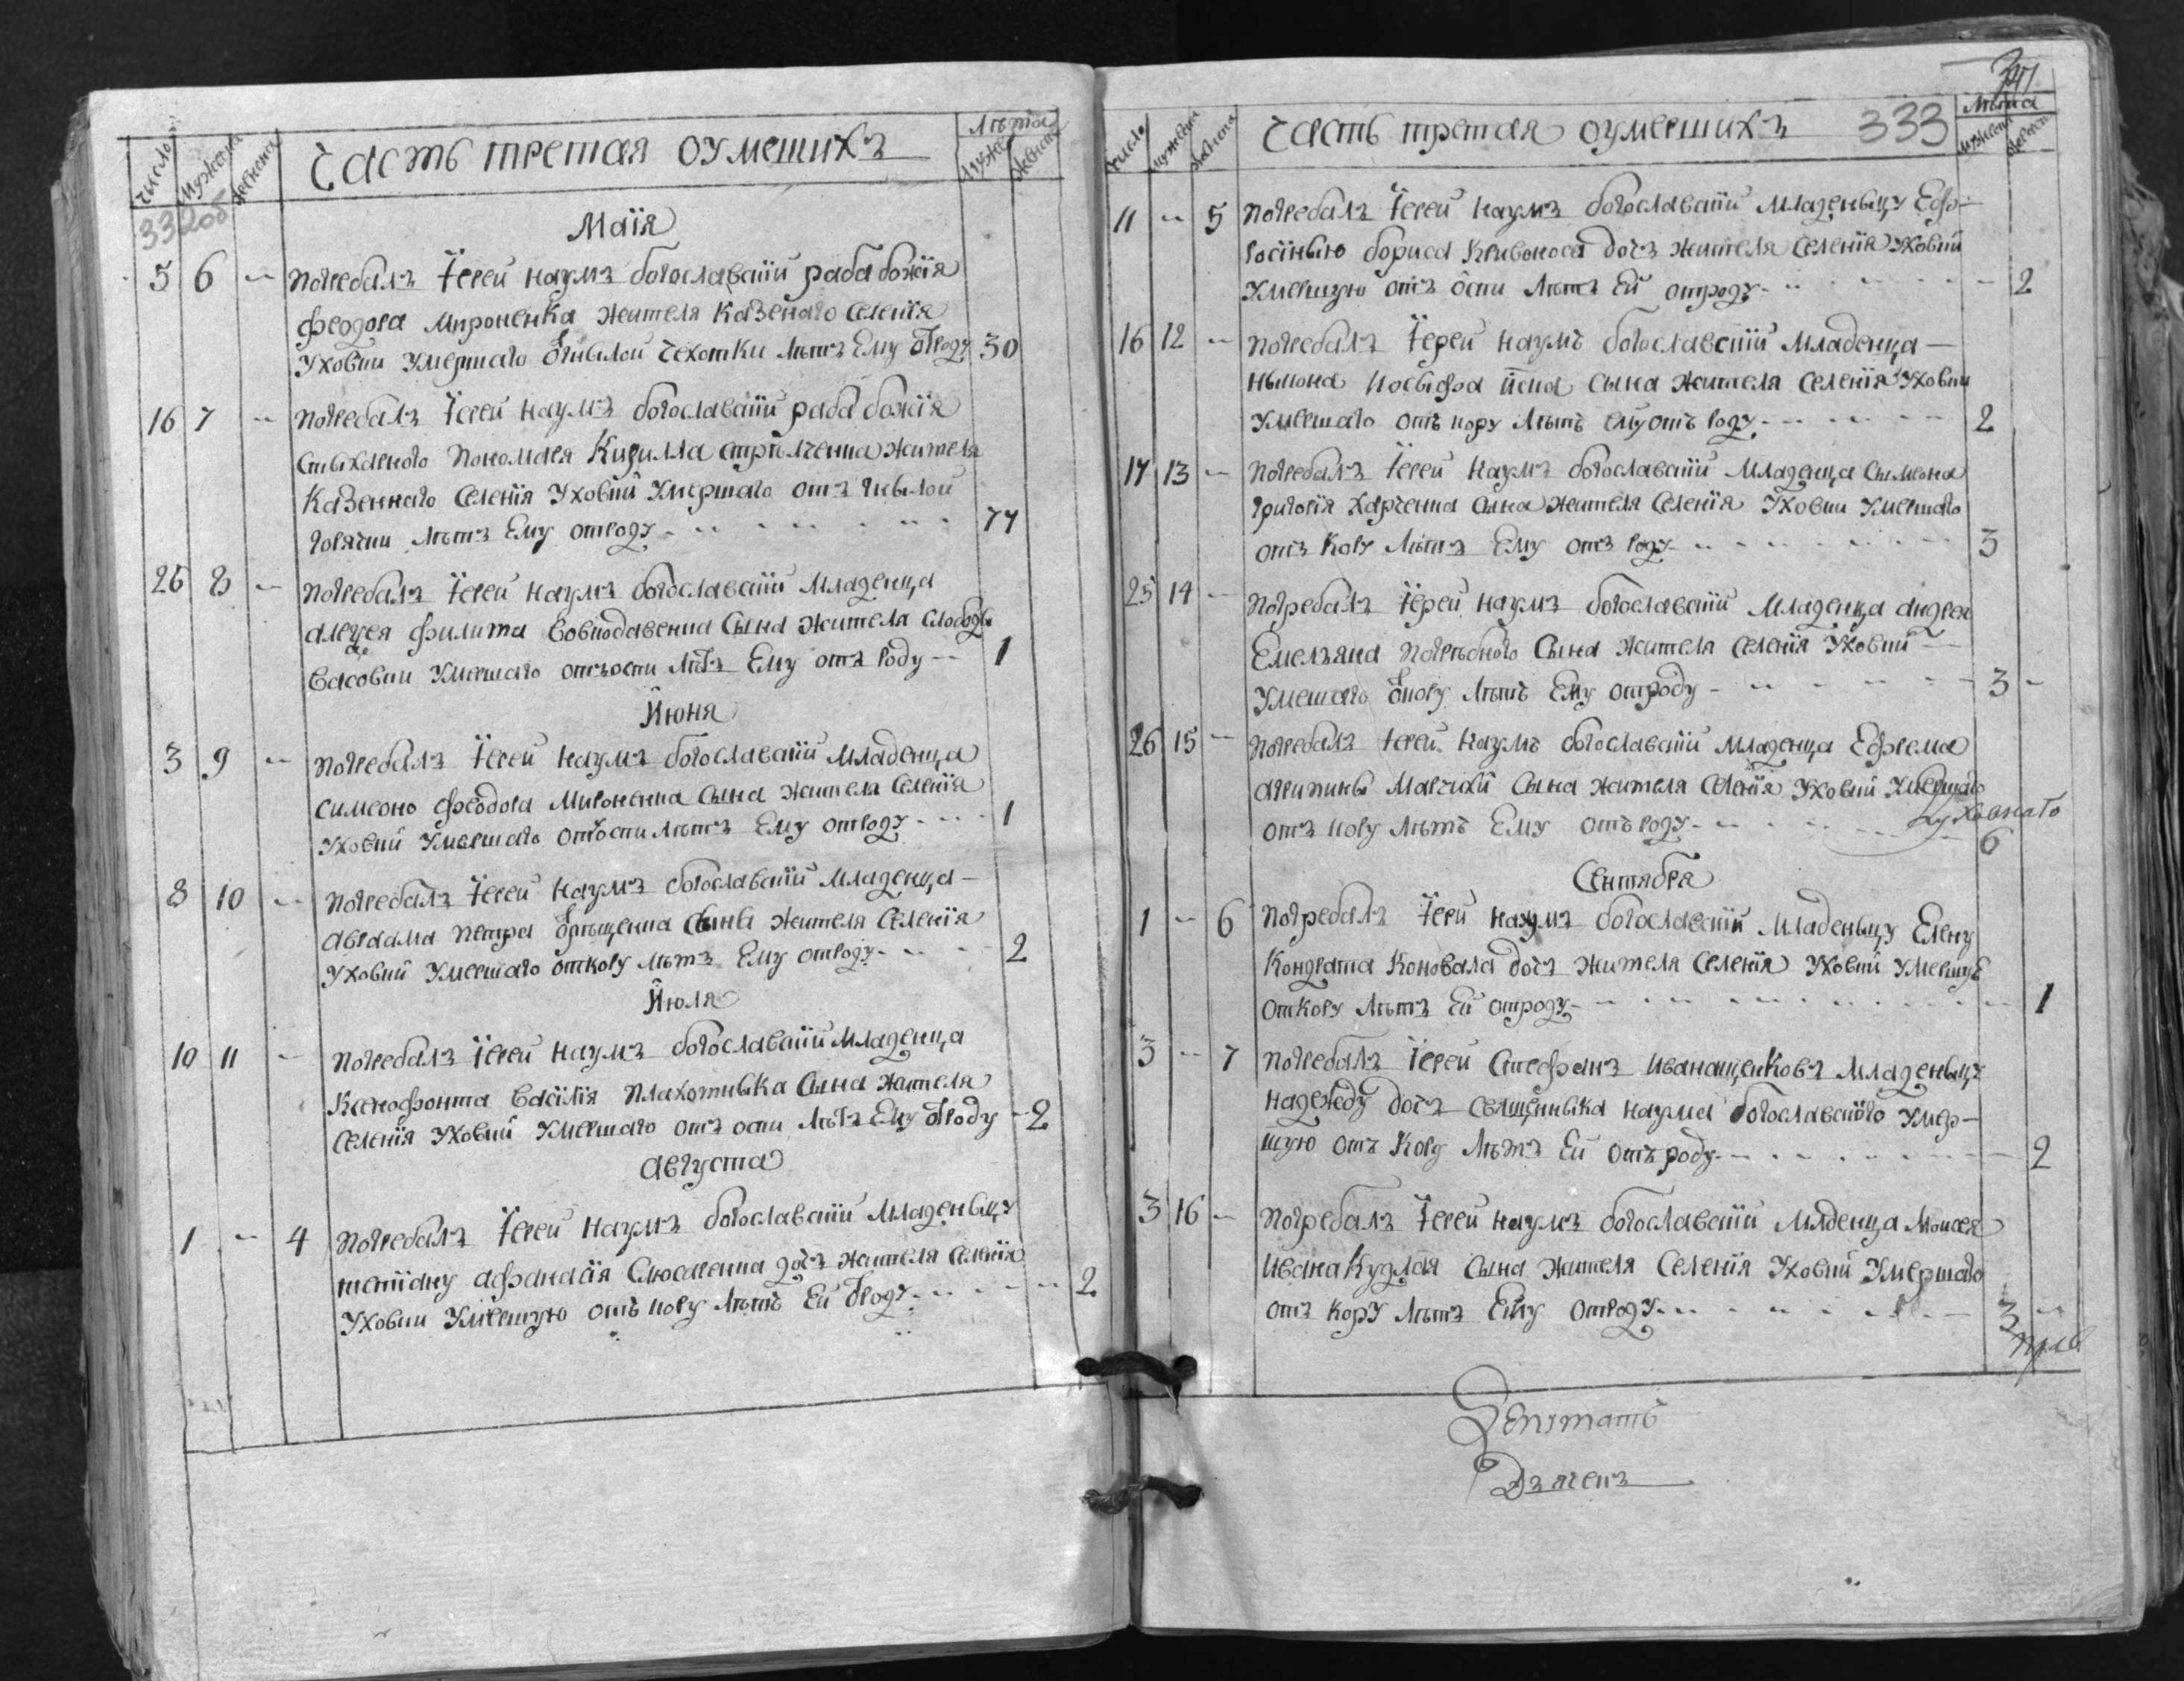 число
мужеска
женска
Часть третая оумешихъ
лѣта
мужес
женск
332об
Маія
5 6 -- погребалъ Їерей наумъ богославскій раба божія
феодора мироненка жителя казеного селенія
уховки умершаго ѿ гнылой чехотки лѣтъ Ему ѿроду 30
16 7 -- погребалъ Їерей наумъ богославскій раба божія
стыхарного пономаря Кирилла стрѣлченка жителя
казенного селенія Уховки Умершаго отъ гнылой
горячки лѣтъ Ему отроду - 77
26 8 -- погребалъ Їерей наумъ богославскій младенца
алеѯея филипа сына жителя слободы
басовки умершаго отъ оспи лѣтъ Ему отъ роду -- 1
Июня
3 9 -- погребалъ Їерей наумъ богославскій младенца
симеоно феодора мироненка сына жителя селенія
уховки умершаго отъ оспи лѣтъ Ему отроду - 1
8 10 -- погребалъ Їерей наумъ богославскій младенца -
авраама петра сына жителя селенія
уховки умершаго откору лѣтъ Ему отроду - 2
Июля
10 11 -- погребалъ Їерей наумъ богославскій младенца
Ксенофонта василія плахотныка сына жителя
селенія уховки умершаго отъ оспи лѣтъ Ему ѿроду - 2
августа
1 -- 4 погребалъ Їерей наумъ богославскій младеныцу
тетіану афанасія слюсаренка дочъ жителя селенія
уховки умершую отъ кору лѣтъ Ей ѿроду - 2
341
число
мужеска
женска
Часть третая оумершихъ
333
лѣта
мужеск
женск
11 -- 5 погребалъ Їерей наумъ богославскій младеныцу Еф-
росѣнью бориса кривоноса дочъ жителя селенія уховки
умершую отъ оспи лѣтъ Ей отроду - 2
16 12 -- погребалъ Їерей наумъ богославскій младенца -
иосыфа сына жителя селенія уховки
умершаго отъ кору лѣтъ ему отъ роду - 2
17 13 -- погребалъ Їерей наумъ богославскій младенца сымеона
григорія харченка сына жителя селенія уховки умершаго
отъ кору лѣтъ Ему отъ роду - 3
25 14 -- погребалъ Їерей наумъ богославскій младенца андрея
Емелъяна погрѣбного сына жителя селенія уховки -
умешаго ѿкору лѣтъ Ему отроду - 3 -
26 15 -- погребалъ Їерей наумъ богославскій младенца Ефрема
агрипины марчихи сына жителя селенія уховки умершаго
отъ кору лѣтъ Ему отъ роду - 6
Духовнаго
Сентября
1 -- 6 погребалъ Їерй наумъ богославскій младеныцу Елену
Кондрата Коновала дочъ жителя селенія уховки умершую
откору лѣтъ Ей отроду - 1
3 -- 7 погребалъ Їерей Стефанъ иванащенковъ младеныцу
надежду дочъ священныка наума богославского умер-
шую отъ кору лѣтъ Ей отъ роду - 2
3 16 -- погребалъ Їерей наумъ богославскій мяденца Моисея
ивана Кудлая сына жителя селенія уховки умершаго
отъ кору лѣтъ Ему отроду - 3 --
прав
Дъяченъ